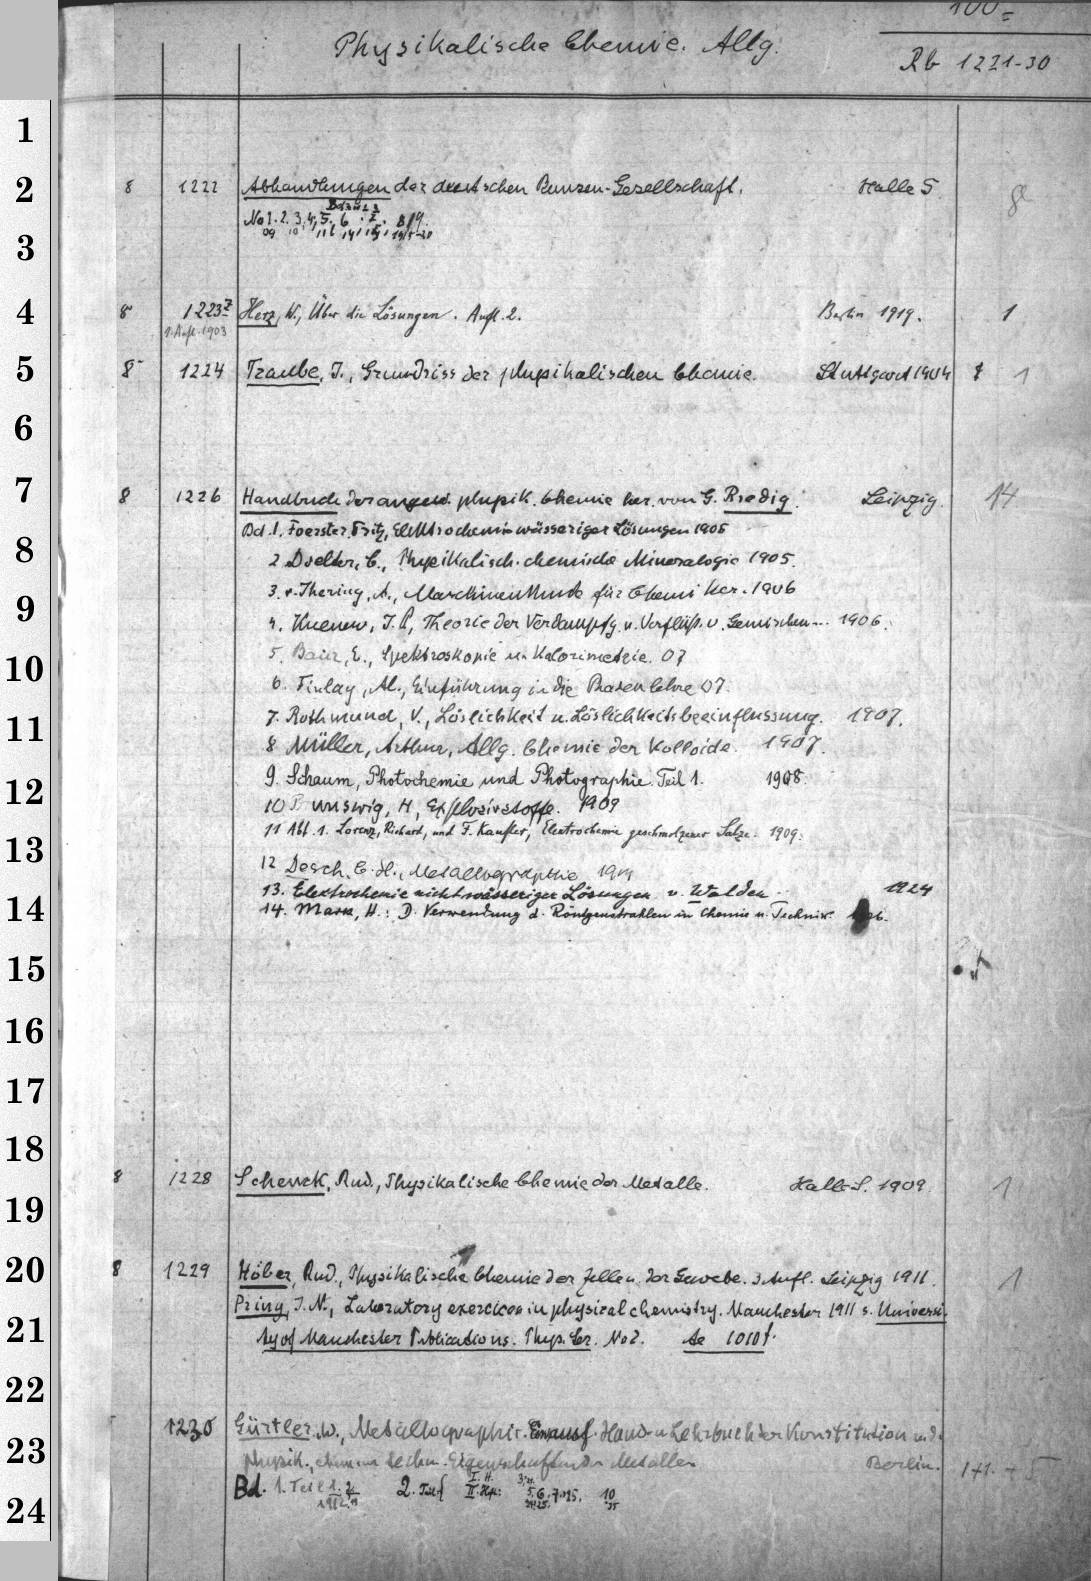 100=
Physikalische Chemie. Allg.
Rb 1221-30
1
2
3
4
5
6
7
8
9
10
11
12
13
14
15
16
17
18
19
20
21
22
23
24
8 1222 Abhandlungen der deutschen Bunsen-Gesellschaft. Halle S. 8
No 1. 2. 3. 4. 5. 6
8 1223 Herz, W., Über die Lösungen. Aufl. 2. Berlin 1919. 1
1. Aufl. 1903
8 1224 Traube, J., Grundriss der physikalischen Chemie. Stuttgart 1904 1
8 1226 Handbuch der angew. physik. Chemie her. von G. Bredig. Leipzig. 14
Bd. 1. Foerster, Fritz, Elektrochemie wässeriger Lösungen 1905
2 Doelter, C., Physikalisch-chemische Mineralogie 1905.
3. v. Ihering, A., Maschinenkunde für Chemiker. 1906
4. Kuenen, J. P., Theorie der Verdampfg. u. Verflüss. v. Gemischen... 1906.
5. Baur, E., Spektroskopie u. Kolorimetrie. 07
6. Finlay, Al., Einführung in die Phasenlehre 07.
7. Rothmund, V., Löslichkeit u. Löslichkeitsbeeinflussung. 1907.
8 Müller, Arthur, Allg. Chemie der Kolloide. 1907.
9. Schaum, Photochemie und Photographie. Teil 1. 1908.
10 Brunswig, H., Explosivstoffe. 1909
11 Abt. 1. Lorenz, Richard, und F. Kaufler, Electrochemie geschmolzener Salze. 1909.
12 Desch, C. H., Metallographie 1914
13. Elektrochemie nichtwässeriger Lösungen v. Walden 1924
14. Mark, H.: D. Verwendung d. Röntgenstrahlen in Chemie u. Technik.
8 1228 Schenck, Rud., Physikalische Chemie der Metalle. Halle S. 1909. 1
8 1229 Höber, Rud., Physikalische Chemie der Zellen der Gewebe. 3 Aufl. Leipzig 1911. 1
Pring, J. N., Laboratory exercices in physical chemistry. Manchester 1911 s. Universi-
ty of Manchester Publications. Phys. Ser. No 2. Ae 1010f.
1230 Gürtler, W., Metallographie. Ein ausf. Hand- u. Lehrbuch der Konstitution und.
physik., chem. u. techn. Eigenschaften der Metalle. Berlin. 1+1. + 5
Bd. 1. Teil 1. 2. Teil I. H. II. Hft: